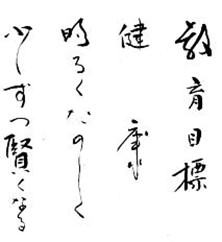 教育目標
健康
明るくたのしく
少しずつ賢くなる